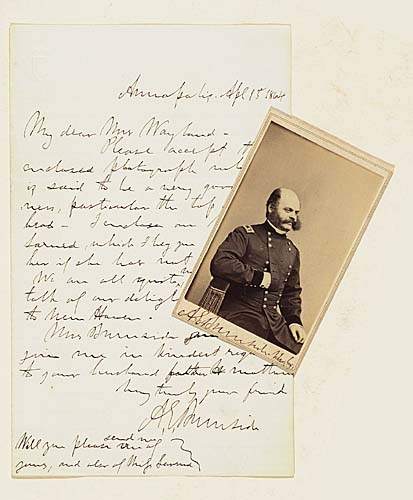 Annapolis. Apl 15 1864
My dear Mrs Wayland -
Please accept t
enclosed photograph wh
is said to be a very goo
ness, particular the top
head - I enclose on
which I beg you
her if she has not
We are all quite
talk of our delight
to New Haven.
Mrs Burnside
give me in kindest reg
to your husband
Very truly your friend
A E Burnside
Will you please send me
yours, and also of Miss
A E Burnside Maj